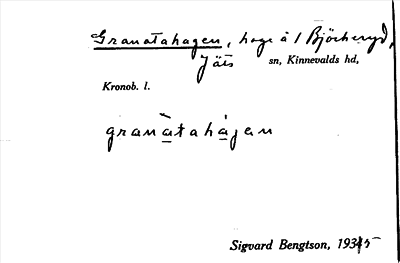 Granatahagen, hage å 1 Björkeryd,
Jäts sn, Kinnevalds hd,
Kronob. l.
granàtahájen
Sigvard Bengtson, 1935